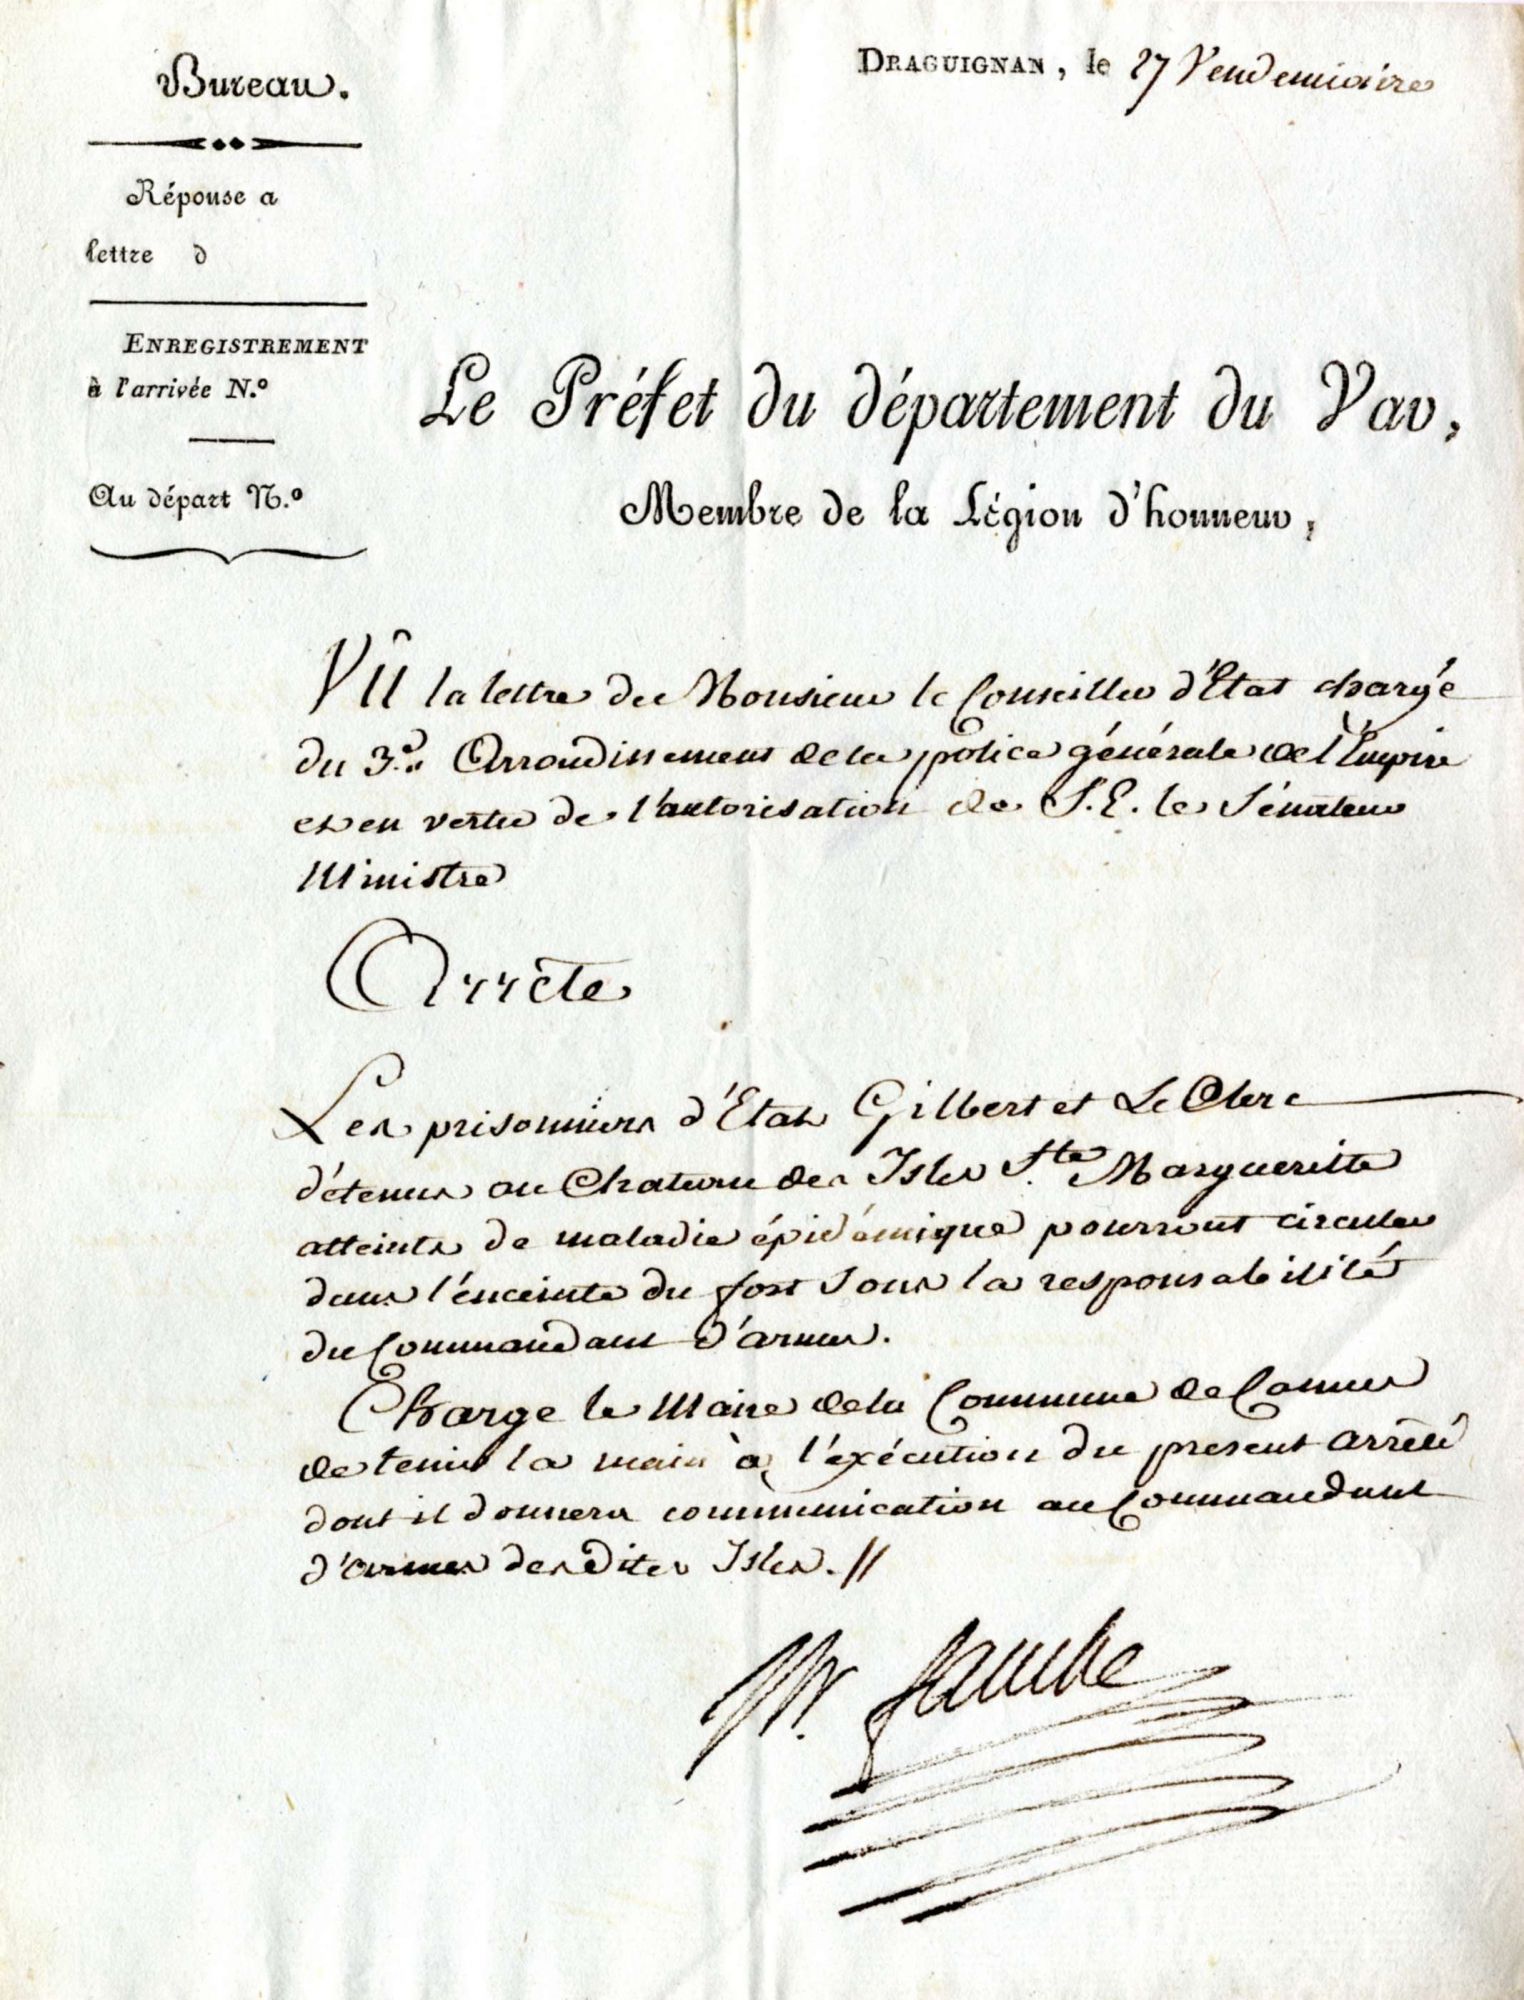 Bureau.
Réponse a
lettre d
ENREGISTREMENT
à l'arrivée N.º
Au départ N.º
DRAGUIGNAN, le 27 Vendemiaire
Le Préfet du département du Var,
Membre de la Légion d'honneur,
Vû la lettre de Monsieur le Conseiller d'Etat chargé
du 3.e Arrondissement de la police générale de l'Empire
et en vertu de l'autorisation de S.E. le Sénateur
Ministre
Arrête
Les prisonniers d'Etat Gilbert et Le Clerc
détenus au Chateau des Isles Ste Margueritte
atteints de maladie épidémique pourront circuler
dans l'enceinte du fort sous la responsabilité
du Commandant d'armes.
Charge le Maire de la Commune de Cannes
de tenir la main à l'exécution du present arrêté
dont il donnera communication au Commandant
d'armes des dites Isles. //
Fauche